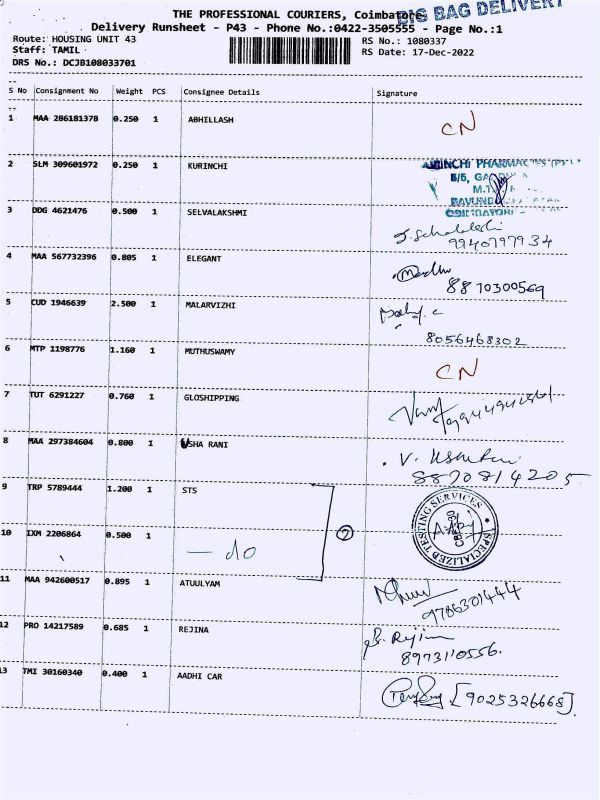 THE PROFESSIONAL COURIERS, Coimbatore
BIG BAG DELIVERY
Delivery Runsheet - P43 - Phone No.:0422-3505555 - Page No.:1
Route: HOUSING UNIT 43
RS No.: 1080337
Staff: TAMIL
RS Date: 17-Dec-2022
DRS No.: DCJB108033701
S No Consignment No Weight PCS Consignee Details Signature
1 MAA 286181378 0.250 1 ABHILLASH CN
2 SLM 309601972 0.250 1 KURINCHI
B/5,
3 DDG 4621476 0.500 1 SELVALAKSHMI
9940797934
4 MAA 567732396 0.805 1 ELEGANT Madhu
8870300569
5 CUD 1946639 2.500 1 MALARVIZHI
8056468302
6 MTP 1198776 1.160 1 MUTHUSWAMY CN
7 TUT 6291227 0.760 1 GLOSHIPPING
8 MAA 297384604 0.800 1 USHA RANI V. Usha Rani
8870814205
9 TRP 5789444 1.200 1 STS
SPECIALIZED TESTING SERVICES
10 IXM 2206864 0.500 1 — do 2
11 MAA 942600517 0.895 1 ATUULYAM
9786301444
12 PRO 14217589 0.685 1 REJINA B. Rejina
8973110556.
13 TMI 30160340 0.400 1 AADHI CAR [9025326668].